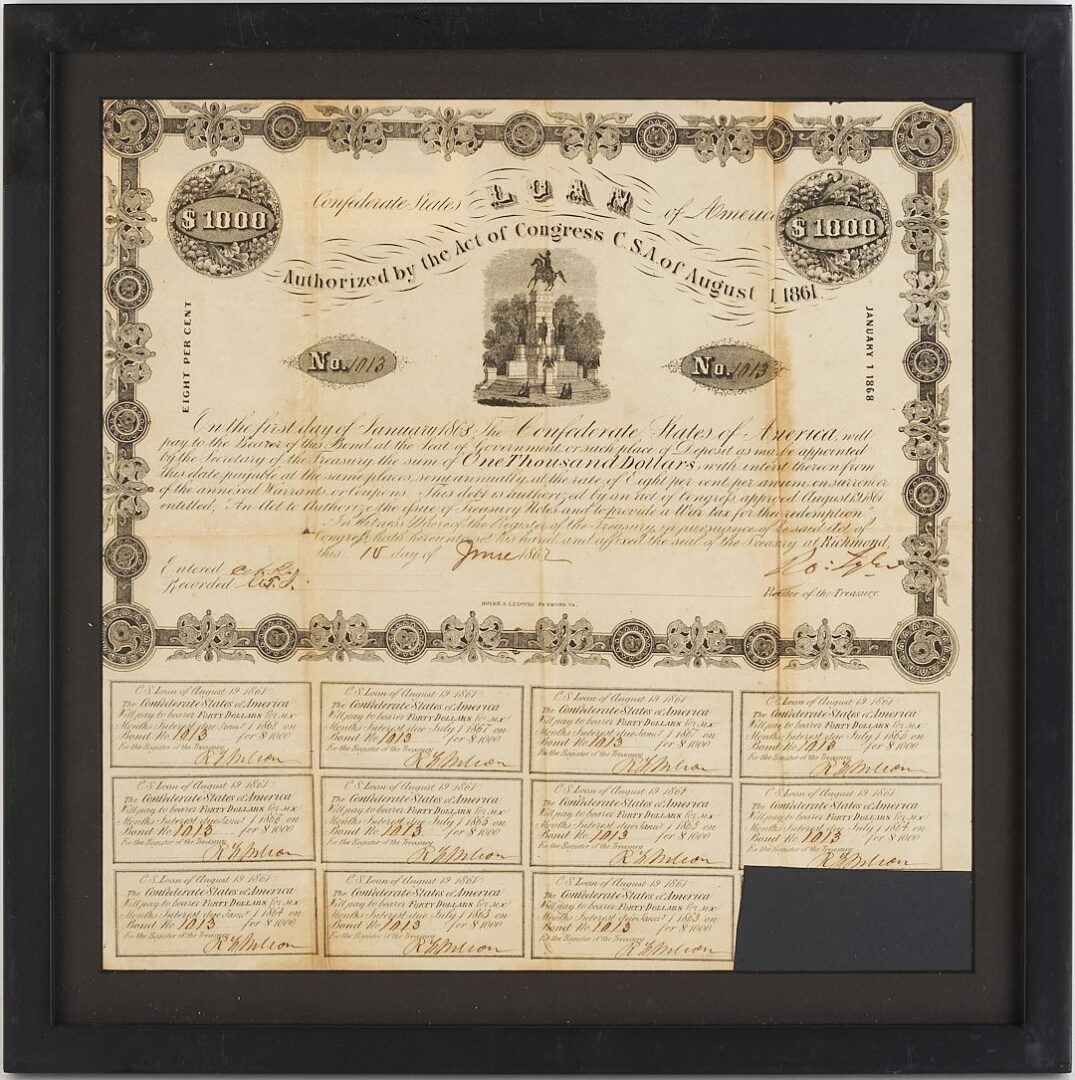 Confederate States LOAN of America
$1000
$1000
Authorized by the Act of Congress C.S.A. of August 1, 1861.
EIGHT PER CENT
JANUARY 1 1868
No. 1013
No. 1013
On the first day of January 1868 The Confederate States of America, will
pay to the Bearer of this Bond, at the Seat of Government, or such place of Deposit as may be appointed
by the Secretary of the Treasury the sum of One Thousand Dollars, with interest thereon from
this date payable at the same places, semi annually, at the rate of Eight per cent. per annum, on surrender
of the annexed Warrants, or Coupons. This debt is authorized by an act of Congress, approved August 19, 1861
entitled, "An Act to Authorize the issue of Treasury Notes and to provide a War tax for their redemption."
In Witness Whereof the Register of the Treasury, in pursuance of said Act of
Congress, hath hereunto set his hand, and affixed the seal of the Treasury at Richmond,
this 10 day of June 1862
Entered
Recorded
Ro: Tyler
Register of the Treasury.
C.S. Loan of August 19 1861
The Confederate States of America
Will pay to bearer FORTY DOLLARS for six
Months Interest due Janu.y 1 1868 on
Bond No 1013 for $1000
For the Register of the Treasury
C.S. Loan of August 19 1861
The Confederate States of America
Will pay to bearer FORTY DOLLARS for six
Months Interest due July 1 1867 on
Bond No 1013 for $1000
For the Register of the Treasury
C.S. Loan of August 19 1861
The Confederate States of America
Will pay to bearer FORTY DOLLARS for six
Months Interest due Janu.y 1 1867 on
Bond No 1013 for $1000
For the Register of the Treasury
C.S. Loan of August 19 1861
The Confederate States of America
Will pay to bearer FORTY DOLLARS for six
Months Interest due July 1 1866 on
Bond No 1013 for $1000
For the Register of the Treasury
C.S. Loan of August 19 1861
The Confederate States of America
Will pay to bearer FORTY DOLLARS for six
Months Interest due Janu.y 1 1866 on
Bond No 1013 for $1000
For the Register of the Treasury
C.S. Loan of August 19 1861
The Confederate States of America
Will pay to bearer FORTY DOLLARS for six
Months Interest due July 1 1865 on
Bond No 1013 for $1000
For the Register of the Treasury
C.S. Loan of August 19 1861
The Confederate States of America
Will pay to bearer FORTY DOLLARS for six
Months Interest due Janu.y 1 1865 on
Bond No 1013 for $1000
For the Register of the Treasury
C.S. Loan of August 19 1861
The Confederate States of America
Will pay to bearer FORTY DOLLARS for six
Months Interest due July 1 1864 on
Bond No 1013 for $1000
For the Register of the Treasury
C.S. Loan of August 19 1861
The Confederate States of America
Will pay to bearer FORTY DOLLARS for six
Months Interest due Janu.y 1 1864 on
Bond No 1013 for $1000
For the Register of the Treasury
C.S. Loan of August 19 1861
The Confederate States of America
Will pay to bearer FORTY DOLLARS for six
Months Interest due July 1 1863 on
Bond No 1013 for $1000
For the Register of the Treasury
C.S. Loan of August 19 1861
The Confederate States of America
Will pay to bearer FORTY DOLLARS for six
Months Interest due Janu.y 1 1863 on
Bond No 1013 for $1000
For the Register of the Treasury